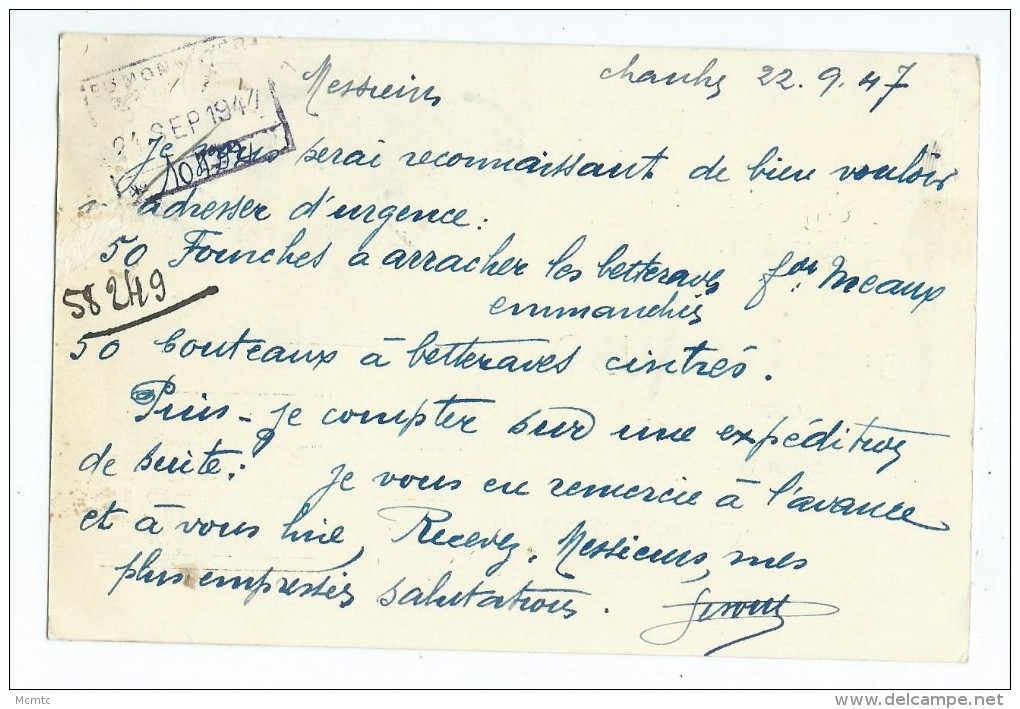 22.9.47
Messieurs
SEP 194
Je vous serai reconnaissant de bien vouloir
adresser d'urgence :
50 Fourches a arracher les betteraves f on Meaux
58249
emmanchés
50 Couteaux à betteraves cintrés.
Puis-je compter sur une expédition
de suite ? Je vous en remercie à l'avance
et à vous lire, Recevez, Messieurs, mes
plus empressées salutations.
Mcmtc
www.delcampe.net